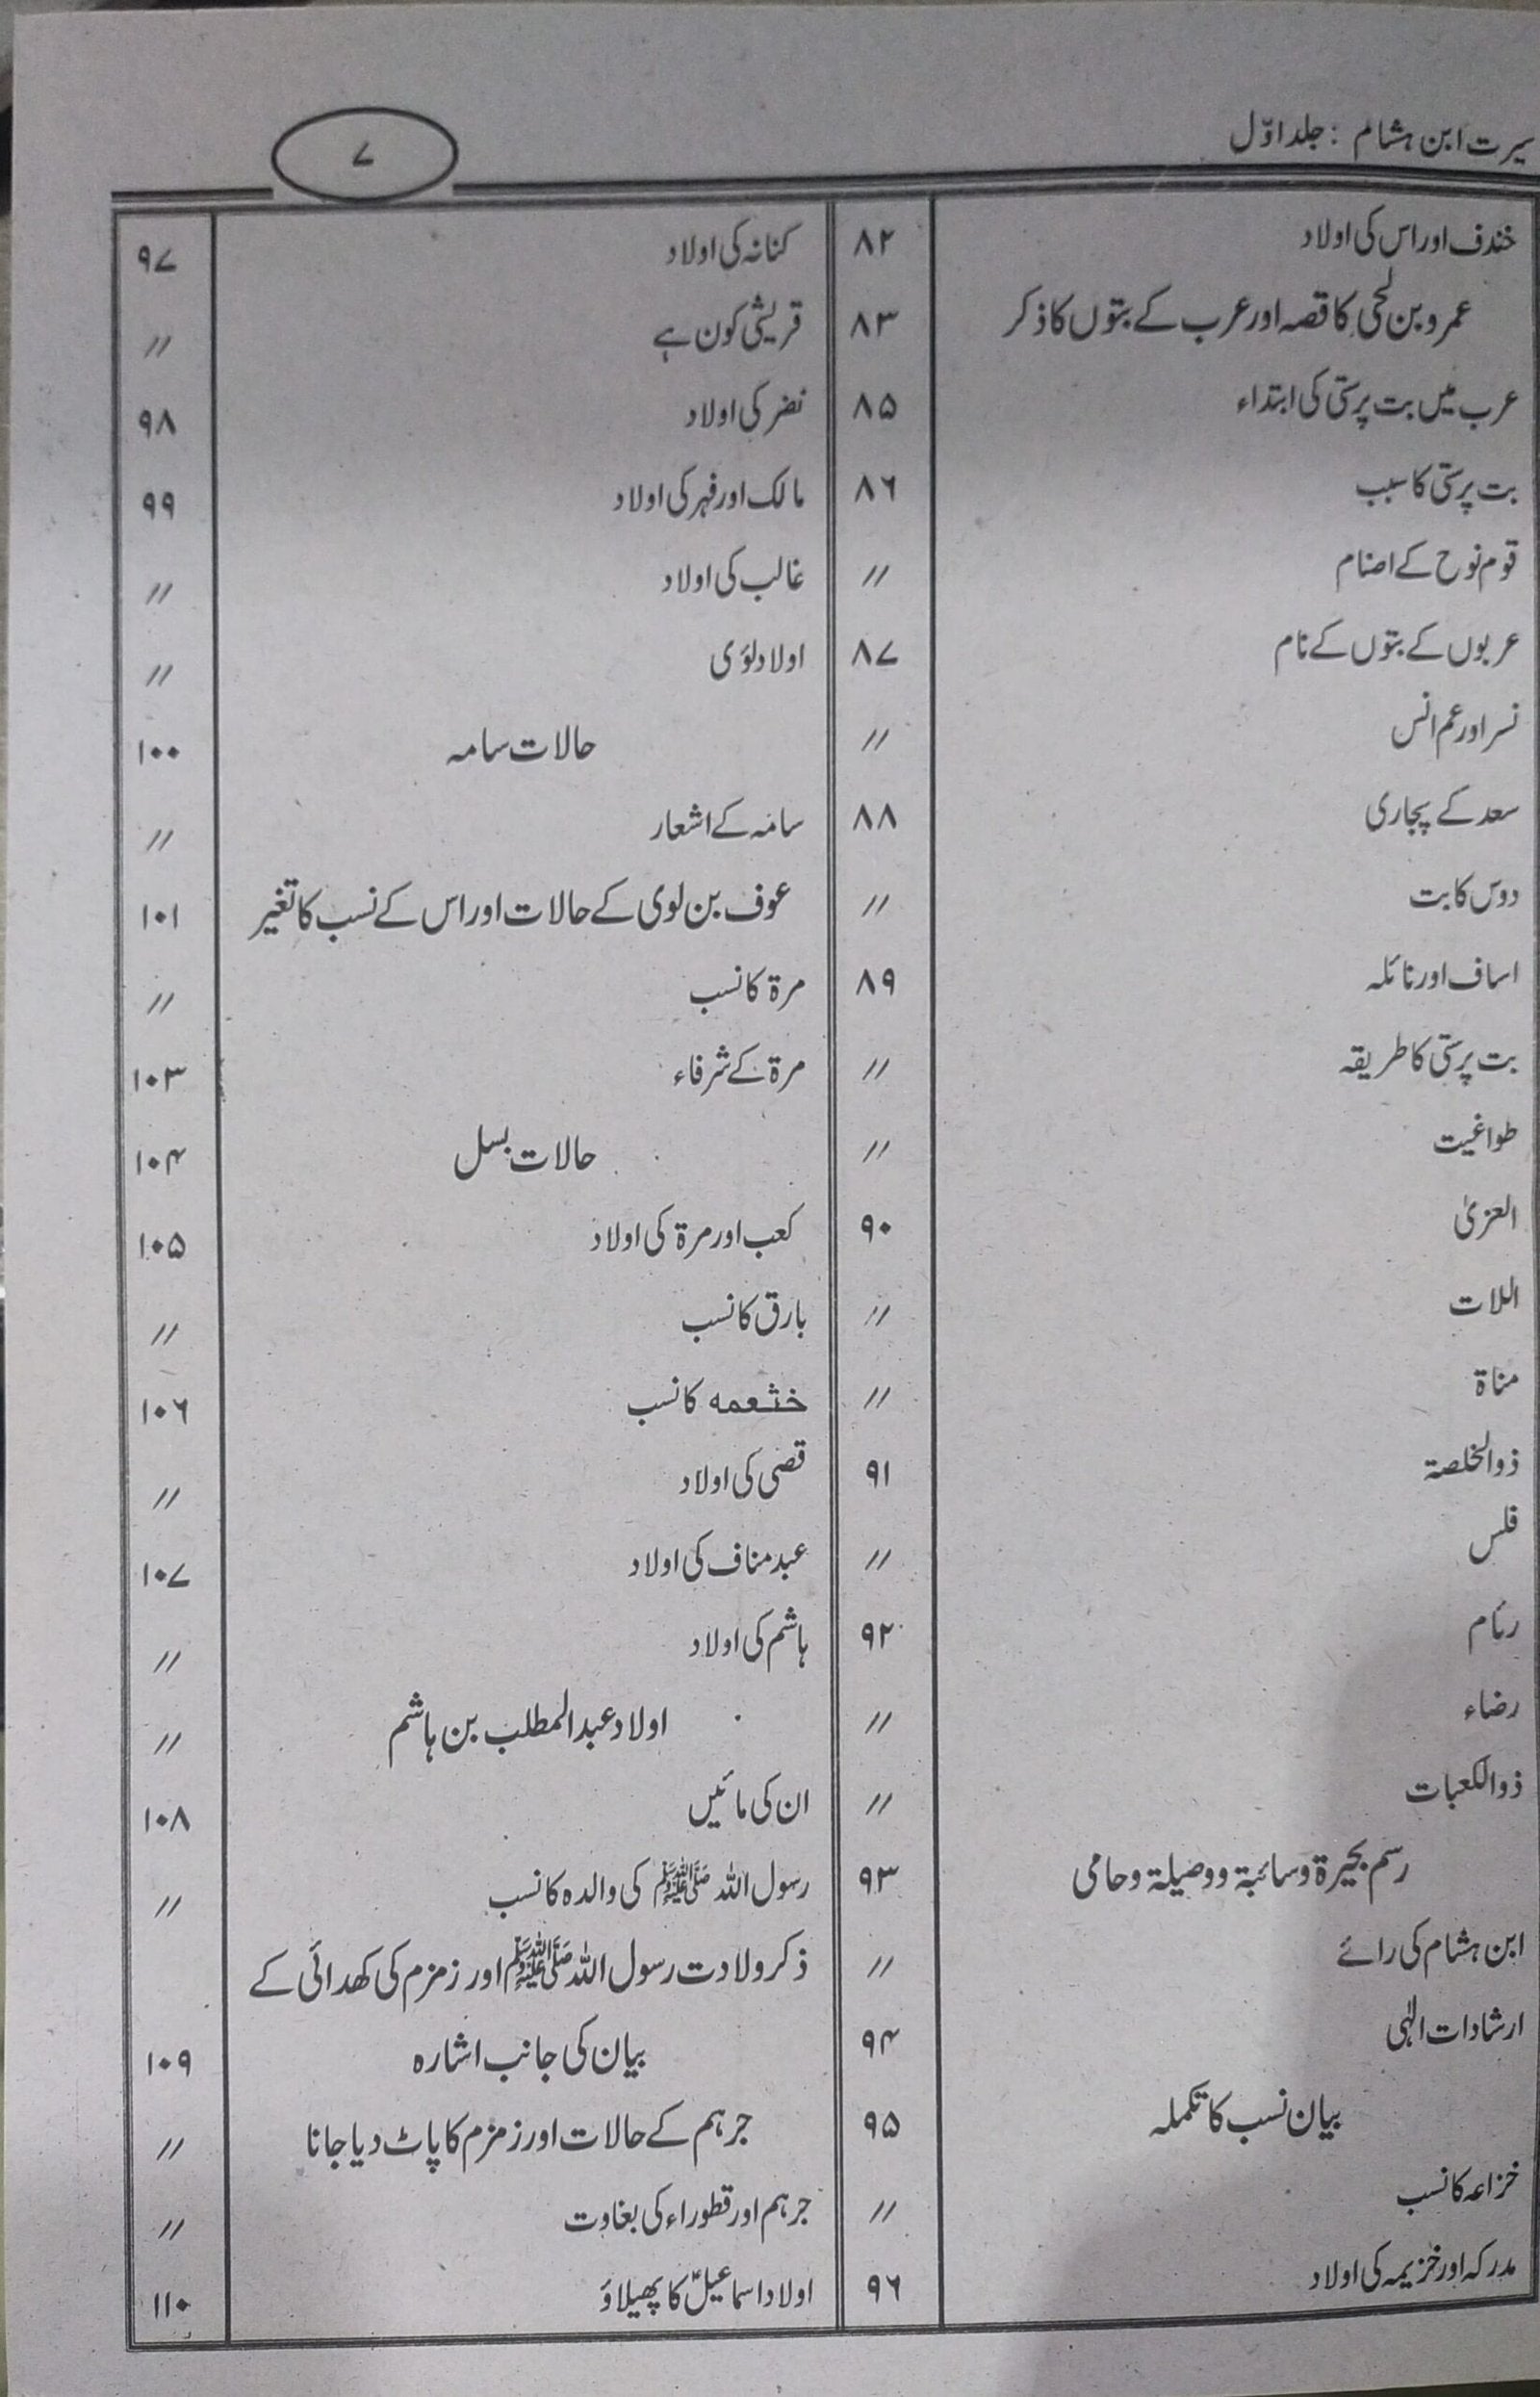 سیرت ابن ہشام : جلد اوّل
۷
خندف اور اس کی اولاد ۸۲
عمرو بن لحی کا قصہ اور عرب کے بتوں کا ذکر ۸۳
عرب میں بت پرستی کی ابتداء ۸۵
بت پرستی کا سبب ۸۶
قوم نوح کے اصنام //
عربوں کے بتوں کے نام ۸۷
نسر اور عم انس //
سعد کے پجاری ۸۸
دوس کا بت //
اساف اور نائلہ ۸۹
بت پرستی کا طریقہ //
طواغیت //
العزیٰ ۹۰
اللات //
مناۃ //
ذوالخلصۃ ۹۱
فلس //
رئام ۹۲
رضاء //
ذوالکعبات //
رسم بحیرۃ و سائبۃ و وصیلۃ و حامی ۹۳
ابن ہشام کی رائے //
ارشادات الٰہی ۹۴
بیان نسب کا تکملہ ۹۵
خزاعہ کا نسب //
مدرکہ اور خزیمہ کی اولاد ۹۶
کنانہ کی اولاد ۹۷
قریشی کون ہے //
نضر کی اولاد ۹۸
مالک اور فہر کی اولاد ۹۹
غالب کی اولاد //
اولاد لؤی //
حالات سامہ ۱۰۰
سامہ کے اشعار //
عوف بن لوی کے حالات اور اس کے نسب کا تغیر ۱۰۱
مرۃ کا نسب //
مرۃ کے شرفاء ۱۰۳
حالات بسل ۱۰۴
کعب اور مرۃ کی اولاد ۱۰۵
بارق کا نسب //
خثعمہ کا نسب ۱۰۶
قصی کی اولاد //
عبد مناف کی اولاد ۱۰۷
ہاشم کی اولاد //
اولاد عبدالمطلب بن ہاشم //
ان کی مائیں ۱۰۸
رسول اللہ ﷺ کی والدہ کا نسب //
ذکر ولادت رسول اللہ ﷺ اور زمزم کی کھدائی کے
بیان کی جانب اشارہ ۱۰۹
جرہم کے حالات اور زمزم کا پاٹ دیا جانا //
جرہم اور قطوراء کی بغاوت //
اولاد اسماعیلؑ کا پھیلاؤ ۱۱۰